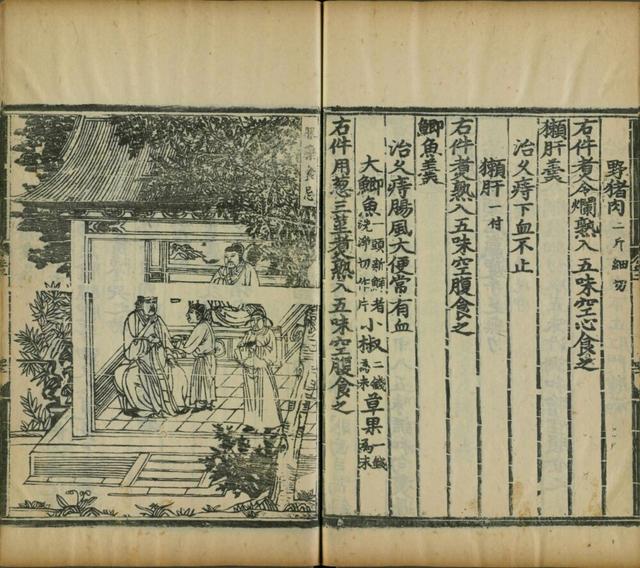 野猪肉二斤細切
右件煮令爛熟入五味空心食之
獺肝羹
治久痔下血不止
獺肝一付
右件煮熟入五味空腹食之
鯽魚羹
治久痔腸風大便常有血
大鯽魚一頭新鮮者洗淨切作片小椒二錢為末草果一錢為末
右件用葱三莖煮熟入五味空腹食之
服藥食忌